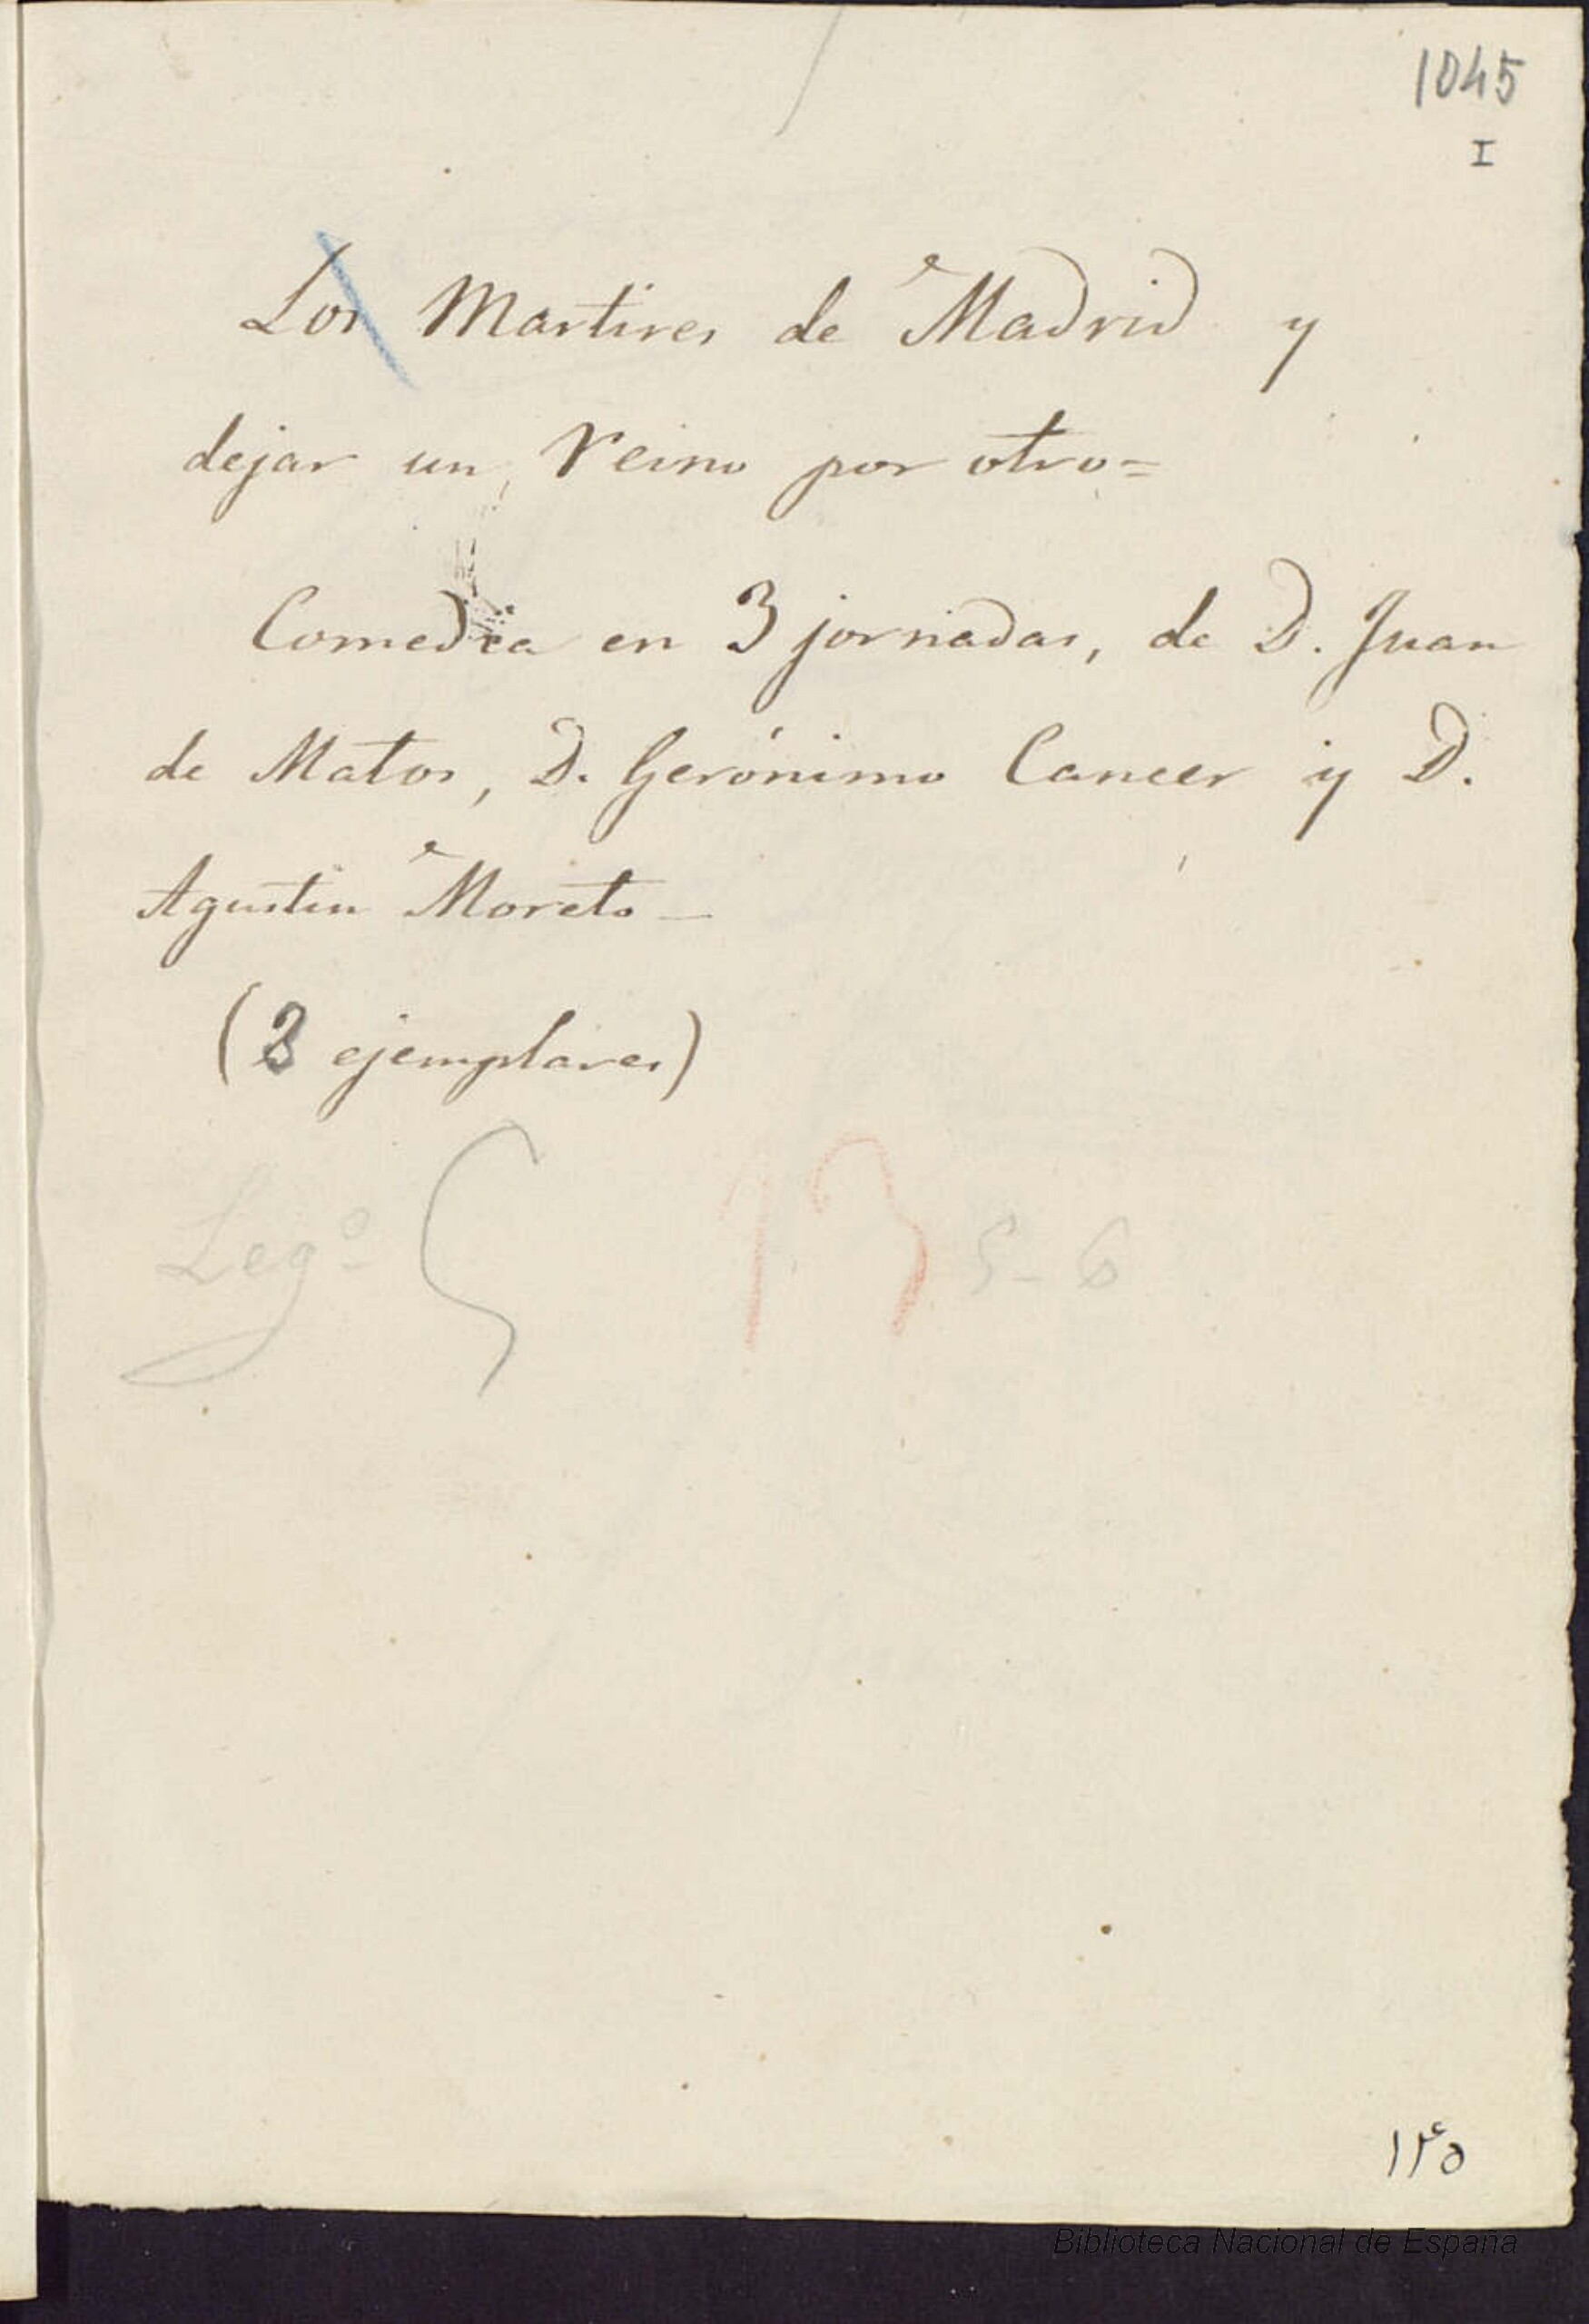 1045
I
Los Martires de Madrid y
dejar un reino por otro=
Comedia en 3 jornadas, de D. Juan
de Matos, D. Gerónimo Cancer y D.
Agustin Moreto –
(3 ejemplares)
Legº 13 5-6
Biblioteca Nacional de España